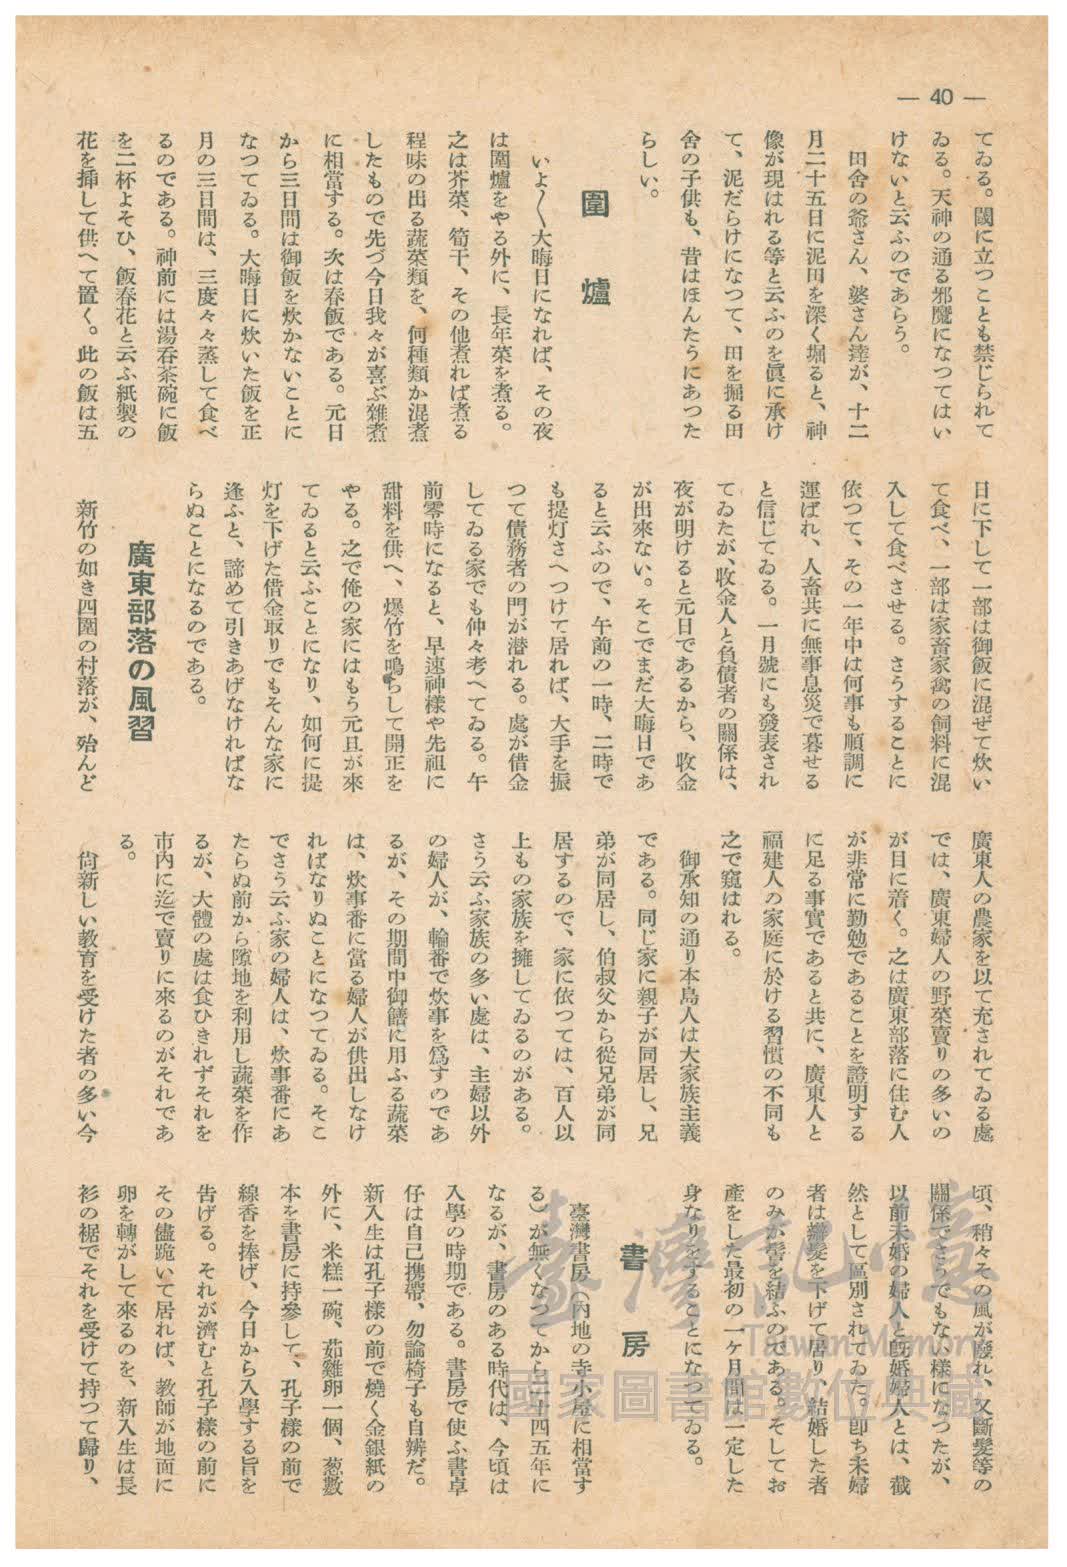 — 40 —
てゐる。閾に立つことも禁じられて
ゐる。天神の通る邪魔になつてはい
けないと云ふのであらう。
田舍の爺さん、婆さん達が、十二
月二十五日に泥田を深く堀ると、神
像が現はれる等と云ふのを眞に承け
て、泥だらけになつて、田を掘る田
舍の子供も、昔はほんたうにあつた
らしい。
圍爐
いよ〱大晦日になれば、その夜
は圍爐をやる外に、長年菜を煮る。
之は芥菜、筍干、その他煮れば煮る
程味の出る蔬菜類を、何種類か混煮
したもので先づ今日我々が喜ぶ雜煮
に相當する。次は春飯である。元日
から三日間は御飯を炊かないことに
なつてゐる。大晦日に炊いた飯を正
月の三日間は、三度々々蒸して食べ
るのである。神前には湯呑茶碗に飯
を二杯よそひ、飯春花と云ふ紙製の
花を揷して供へて置く。此の飯は五
日に下して一部は御飯に混ぜて炊い
て食べ、一部は家畜家禽の飼料に混
入して食べさせる。さうすることに
依つて、その一年中は何事も順調に
運ばれ、人畜共に無事息災で暮せる
と信じてゐる。一月號にも發表され
てゐたが、收金人と負債者の關係は、
夜が明けると元日であるから、收金
が出來ない。そこでまだ大晦日であ
ると云ふので、午前の一時、二時で
も提灯さへつけて居れば、大手を振
つて債務者の門が潜れる。處が借金
してゐる家でも仲々考へてゐる。午
前零時になると、早速神樣や先祖に
甜料を供へ、爆竹を鳴らして開正を
やる。之で俺の家にはもう元旦が來
てゐると云ふことになり、如何に提
灯を下げた借金取りでもそんな家に
逢ふと、諦めて引きあげなければな
らぬことになるのである。
廣東部落の風習
新竹の如き四圍の村落が、殆んど
廣東人の農家を以て充されてゐる處
では、廣東婦人の野菜賣りの多いの
が目に着く。之は廣東部落に住む人
が非常に勤勉であることを證明する
に足る事實であると共に、廣東人と
福建人の家庭に於ける習慣の不同も
之で窺はれる。
御承知の通り本島人は大家族主義
である。同じ家に親子が同居し、兄
弟が同居し、伯叔父から從兄弟が同
居するので、家に依つては、百人以
上もの家族を擁してゐるのがある。
さう云ふ家族の多い處は、主婦以外
の婦人が、輪番で炊事を爲すのであ
るが、その期間中御饍に用ふる蔬菜
は、炊事番に當る婦人が供出しなけ
ればなりぬことになつてゐる。そこ
でさう云ふ家の婦人は、炊事番にあ
たらぬ前から隙地を利用し蔬菜を作
るが、大體の處は食ひきれずそれを
市內に迄で賣りに來るのがそれであ
る。
尙新しい教育を受けた者の多い今
頃、稍々その風が廢れ、又斷髮等の
關係でさうでもない樣になつたが、
以前未婚の婦人と既婚婦人とは、截
然として區別されてゐた。卽ち未婦
者は辮髮を下げて居り、結婚した者
のみが髻を結ふのである。そしてお
產をした最初の一ケ月間は一定した
身なりをすることになつてゐる。
書房
臺灣書房（內地の寺小屋に相當す
る）が無くなつてから二十四五年に
なるが、書房のある時代は、今頃は
入學の時期である。書房で使ふ書卓
仔は自己携帶、勿論椅子も自辨だ。
新入生は孔子樣の前で燒く金銀紙の
外に、米糕一碗、茹雞卵一個、葱數
本を書房に持參して、孔子樣の前で
線香を捧げ、今日から入學する旨を
告げる。それが濟むと孔子樣の前に
その儘跪いて居れば、教師が地面に
卵を轉がして來るのを、新入生は長
衫の裾でそれを受けて持つて歸り、
臺灣記憶
Taiwan Memory
國家圖書館數位典藏